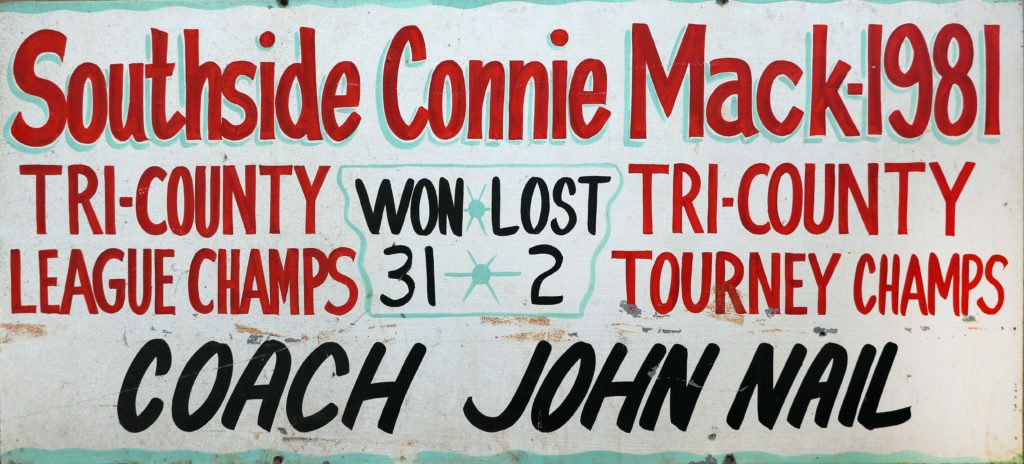 Southside Connie Mack-1981
TRI-COUNTY WON LOST TRI-COUNTY
LEAGUE CHAMPS 31 2 TOURNEY CHAMPS
COACH JOHN NAIL